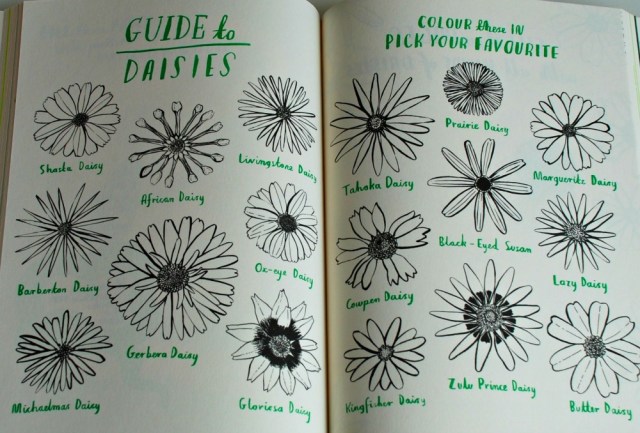 GUIDE to
DAISIES
Shasta Daisy
African Daisy
Livingstone Daisy
Barberton Daisy
Gerbera Daisy
Ox-eye Daisy
Michaelmas Daisy
Gloriosa Daisy
COLOUR these IN
PICK YOUR FAVOURITE
Tahoka Daisy
Prairie Daisy
Marguerite Daisy
Black-Eyed Susan
Cowpen Daisy
Lazy Daisy
Kingfisher Daisy
Zulu Prince Daisy
Butter Daisy